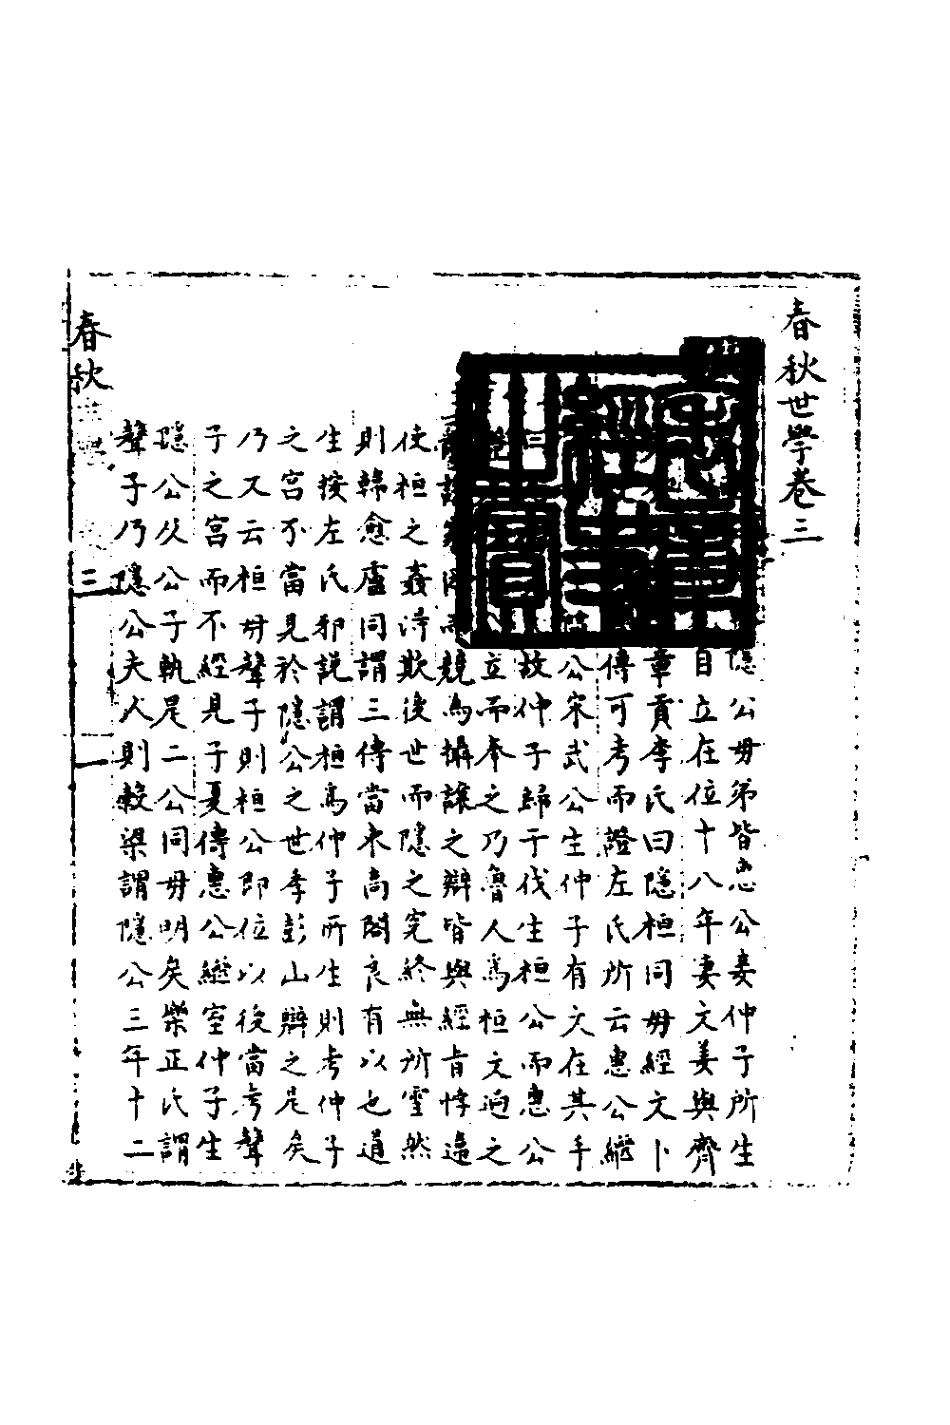 春秋世學卷三
隱公毋弟皆惠公妾仲子所生
自立在位十八年妻文姜與齊
章貢李氏曰隱桓同毋經文卜
傳可考而證左氏所云惠公繼
公宋武公生仲子有文在其手
曰故仲子歸于伐生桓公而惠公
立而奉之乃魯人為桓文迫之
競為攝讓之辯皆與經旨悖違
使桓之姦得欺後世而隱之冤終無所雪然
則韓愈盧同謂三傳當束高閣良有以也道
生按左氏邪說謂桓為仲子所生則考仲子
之宮不當見於隱公之世季彭山辯之是矣
乃又云桓毋聲子則桓公即位以後當考聲
子之宮而不經見子夏傳惠公繼室仲子生
隱公及公子軌是二公同毋明矣榮正氏謂
聲子乃隱公夫人則穀梁謂隱公三年十二
春秋世學
三
一